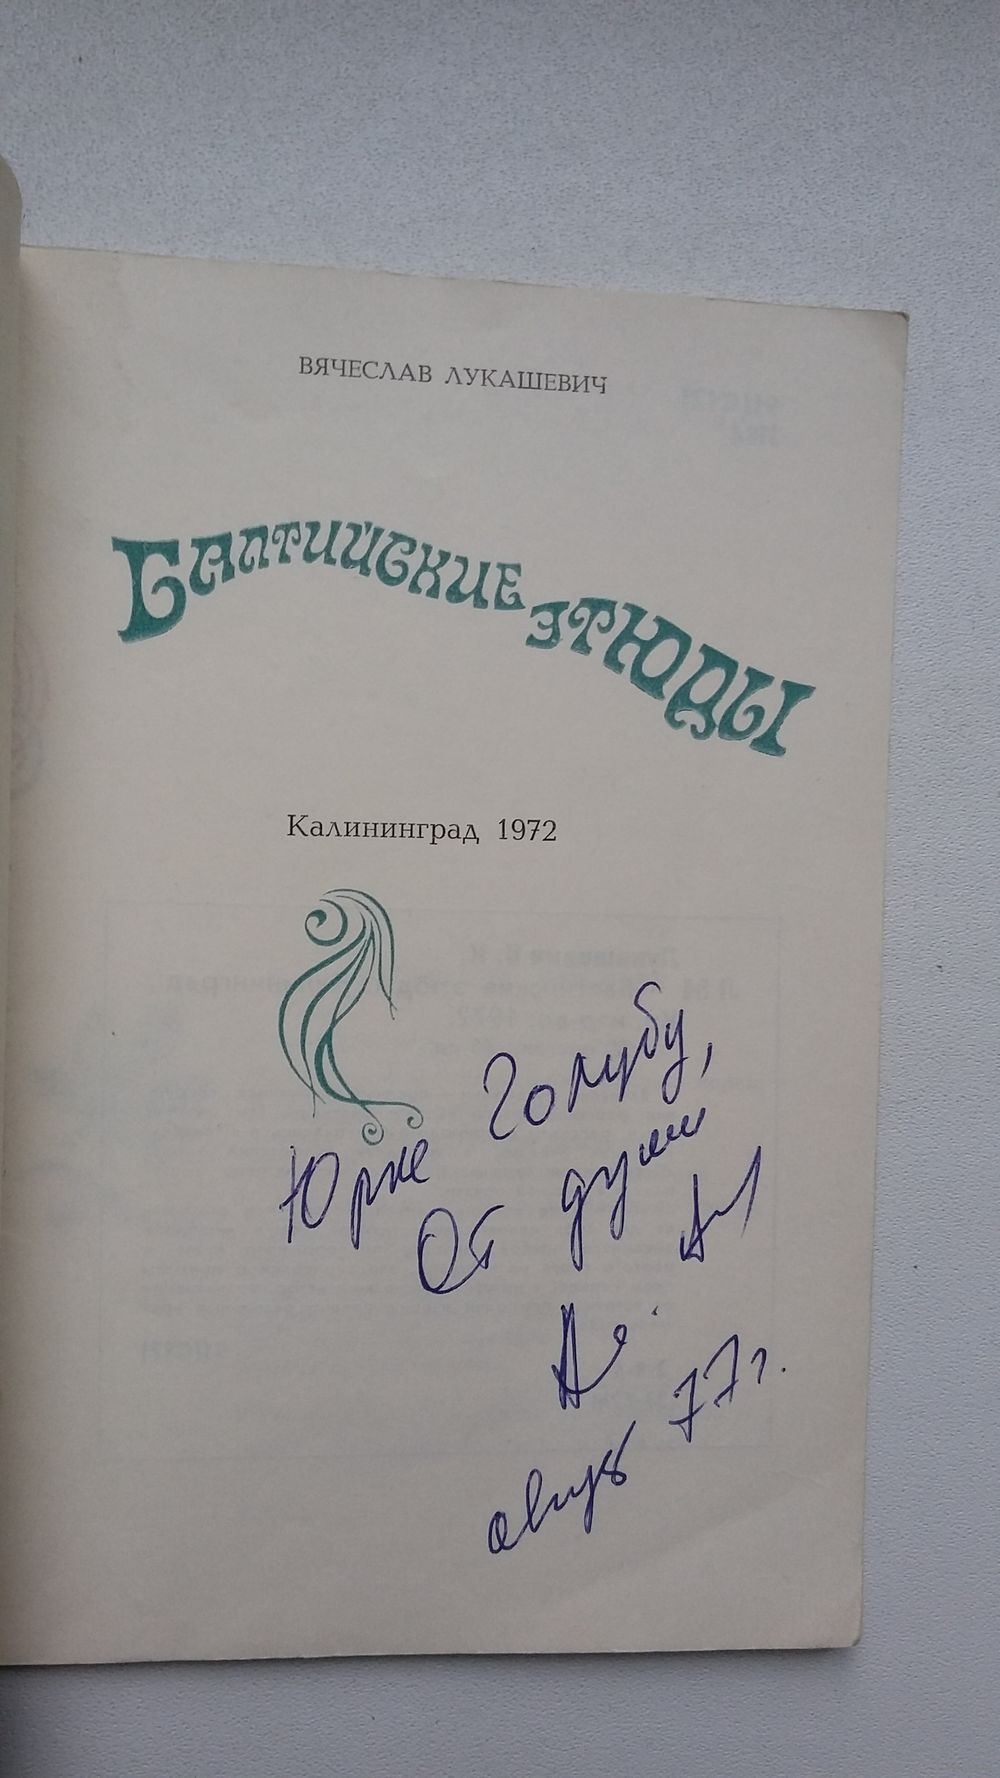 ВЯЧЕСЛАВ ЛУКАШЕВИЧ
БАЛТИЙСКИЕ ЭТЮДЫ
Калининград 1972
Юрке Голубу,
От души
август 77 г.